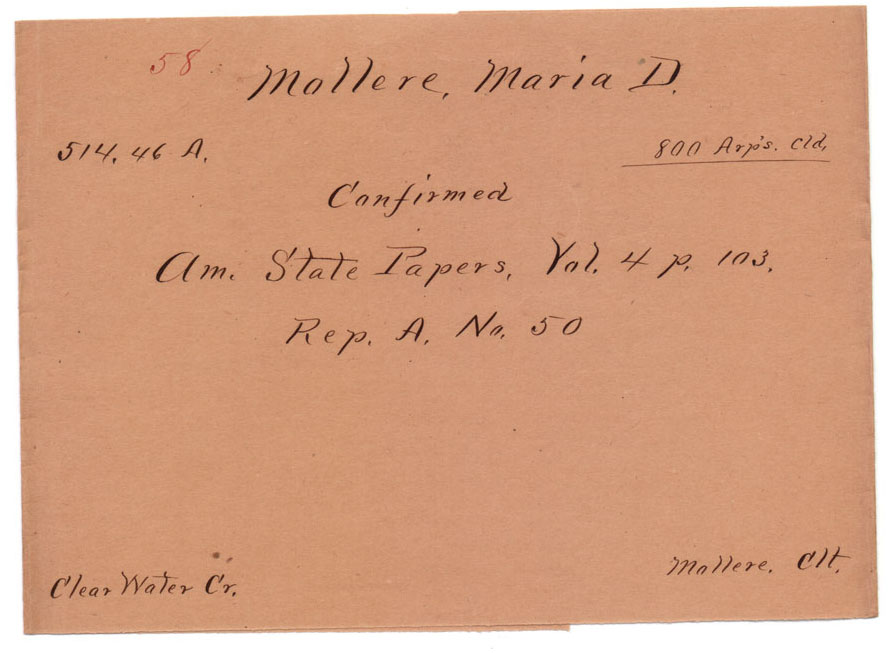 58
Mollere, Maria D.
514.46 A.
800 Arp's. Cld.
Confirmed
Am. State Papers, Vol. 4 p. 103.
Rep. A. No. 50
Clear Water Cr.
Mollere. Clt.